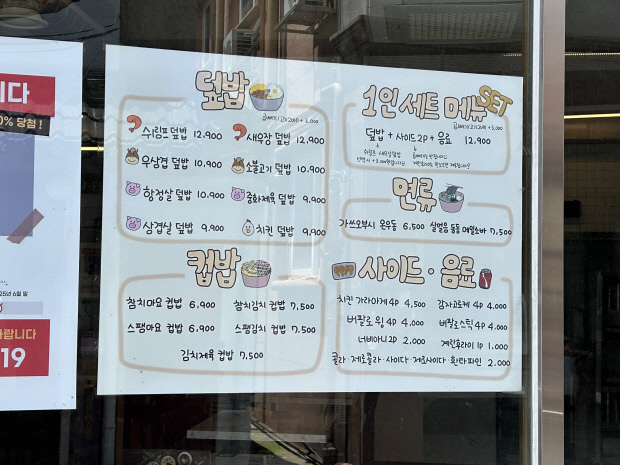 니다
0% 당첨!
25년 6월 말
바랍니다
19
덮밥
곱빼기(고기2배) + 3,000
쉬림프 덮밥 12,900
새우장 덮밥 12,900
우삼겹 덮밥 10,900
소불고기 덮밥 10,900
항정살 덮밥 10,900
중화제육 덮밥 9,900
삼겹살 덮밥 9,900
치킨 덮밥 9,900
컵밥
참치마요 컵밥 6,900
참치김치 컵밥 7,500
스팸마요 컵밥 6,900
스팸김치 컵밥 7,500
김치제육 컵밥 7,500
1인 세트 메뉴 SET
곱빼기(고기2배) + 3,000
덮밥 + 사이드2P + 음료 12,900
면류
가쓰오부시 온우동 6,500
살얼음 동동 메밀소바 7,500
사이드 · 음료
치킨 가라아게 4P 4,500
감자고로케 4P 4,000
버팔로 윙 4P 4,000
버팔로스틱 4P 4,000
너비아니 2P 2,000
계란후라이 1P 1,000
콜라 · 제로콜라 · 사이다 · 제로사이다 · 환타파인 2,000